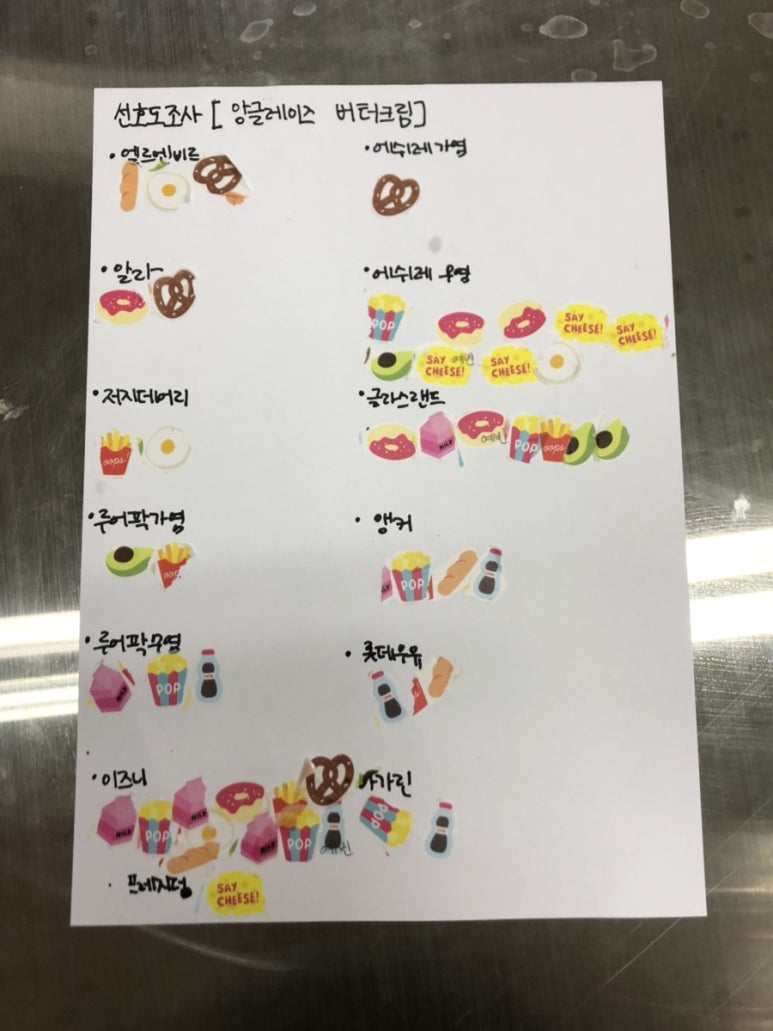 선호도조사 [ 앙글레이즈 버터크림 ]
· 엘르엔비르
· 에쉬레가염
· 알라
· 에쉬레 무염
POP
SAY CHEESE!
SAY CHEESE!
SAY CHEESE!
예빈
SAY CHEESE!
· 저지데어리
oops
· 글라스랜드
MILK
예빈
POP
oops
· 루어팍가염
oops
· 앵커
POP
· 루어팍무염
MILK
POP
· 롯데우유
· 이즈니
MILK
POP
MILK
MILK
POP
예빈
마가린
POP
· 프레지덩
SAY CHEESE!